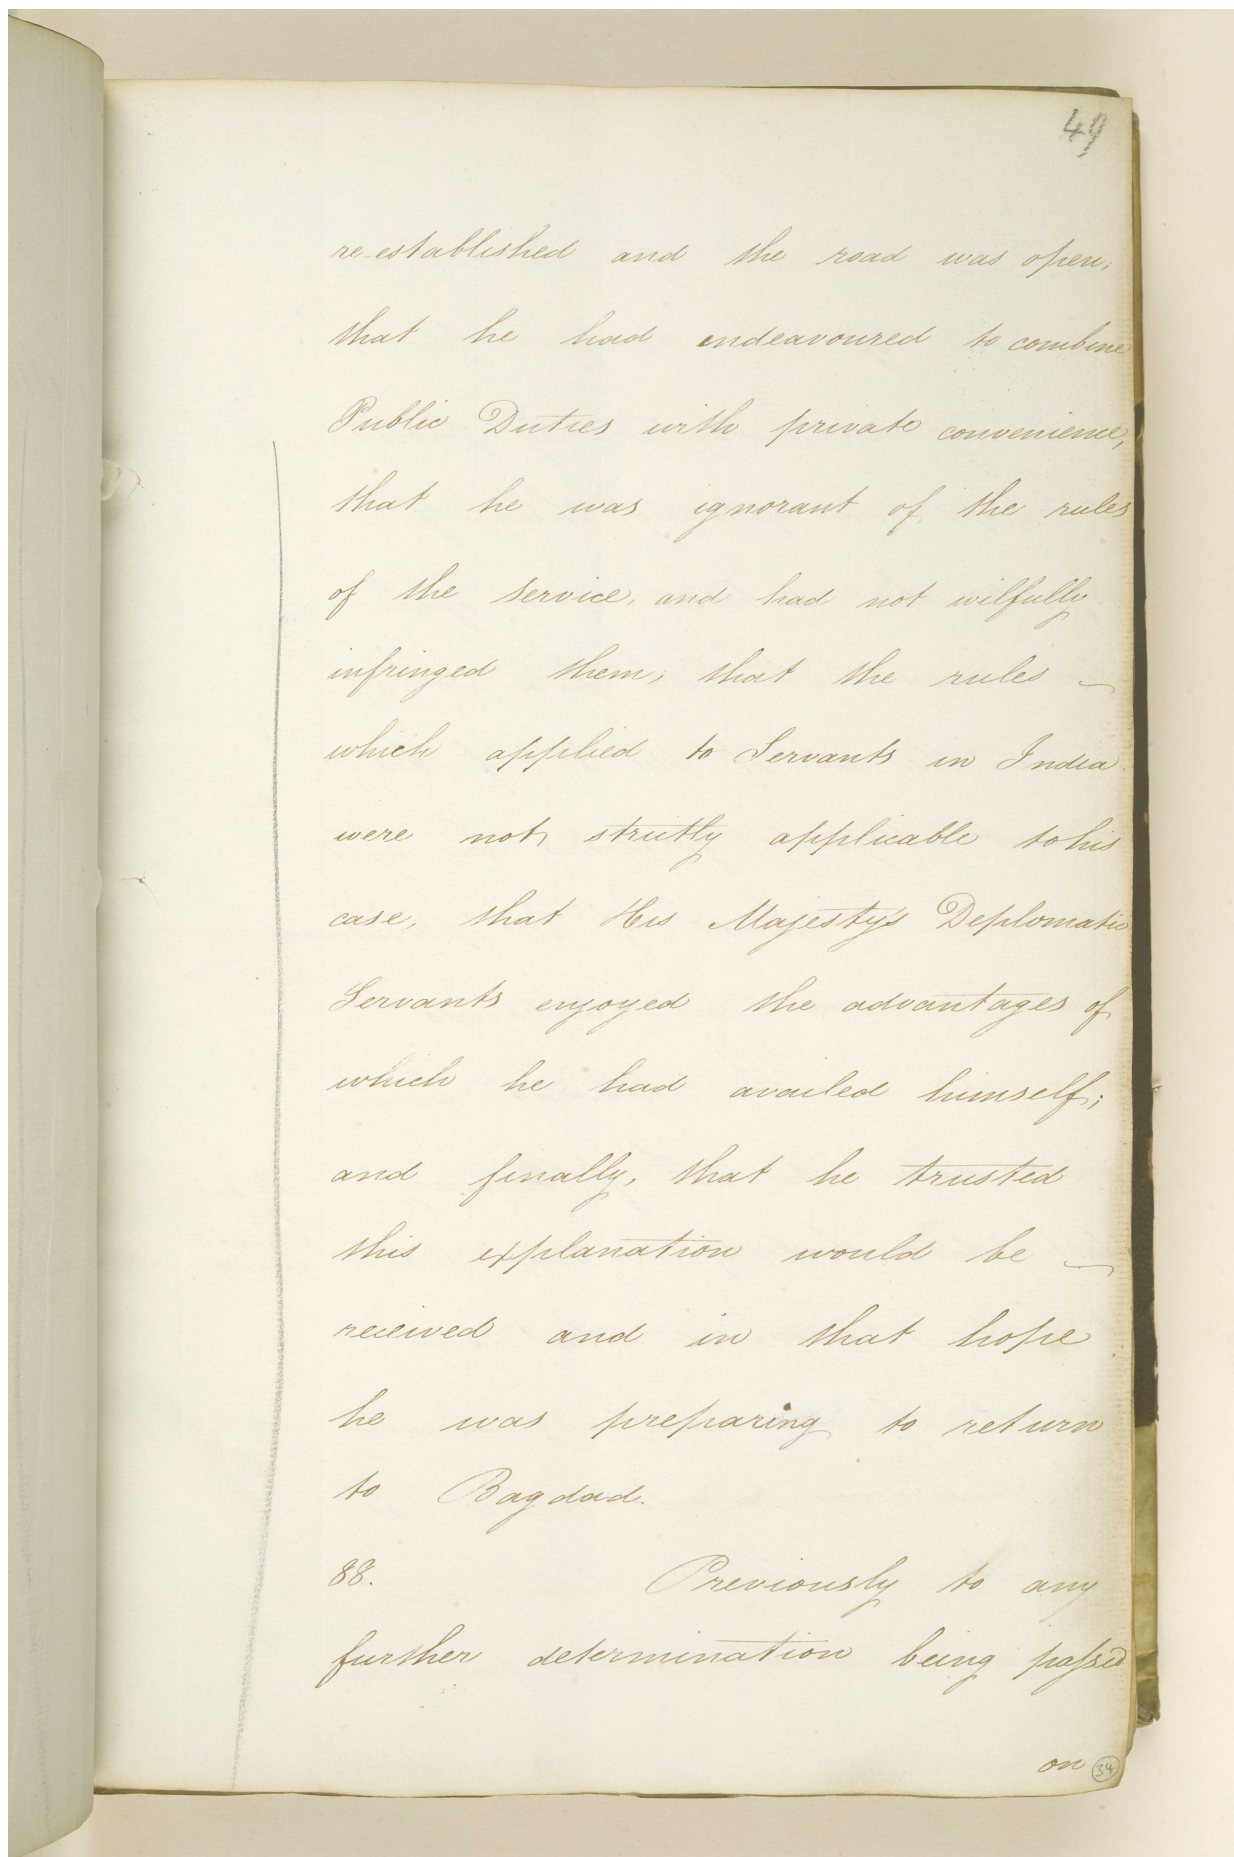 49
re-established and the road was open;
that he had endeavoured to combine
Public Duties with private convenience,
that he was ignorant of the rules
of the service, and had not wilfully
infringed them; that the rules
which applied to Servants in India
were not strictly applicable to his
case, that His Majesty's Deplomatic
Servants enjoyed the advantages of
which he had availed himself;
and finally, that he trusted
this explanation would be
received and in that hope
he was preparing to return
to Bagdad.
88. Previously to any
further determination being passed
on
34